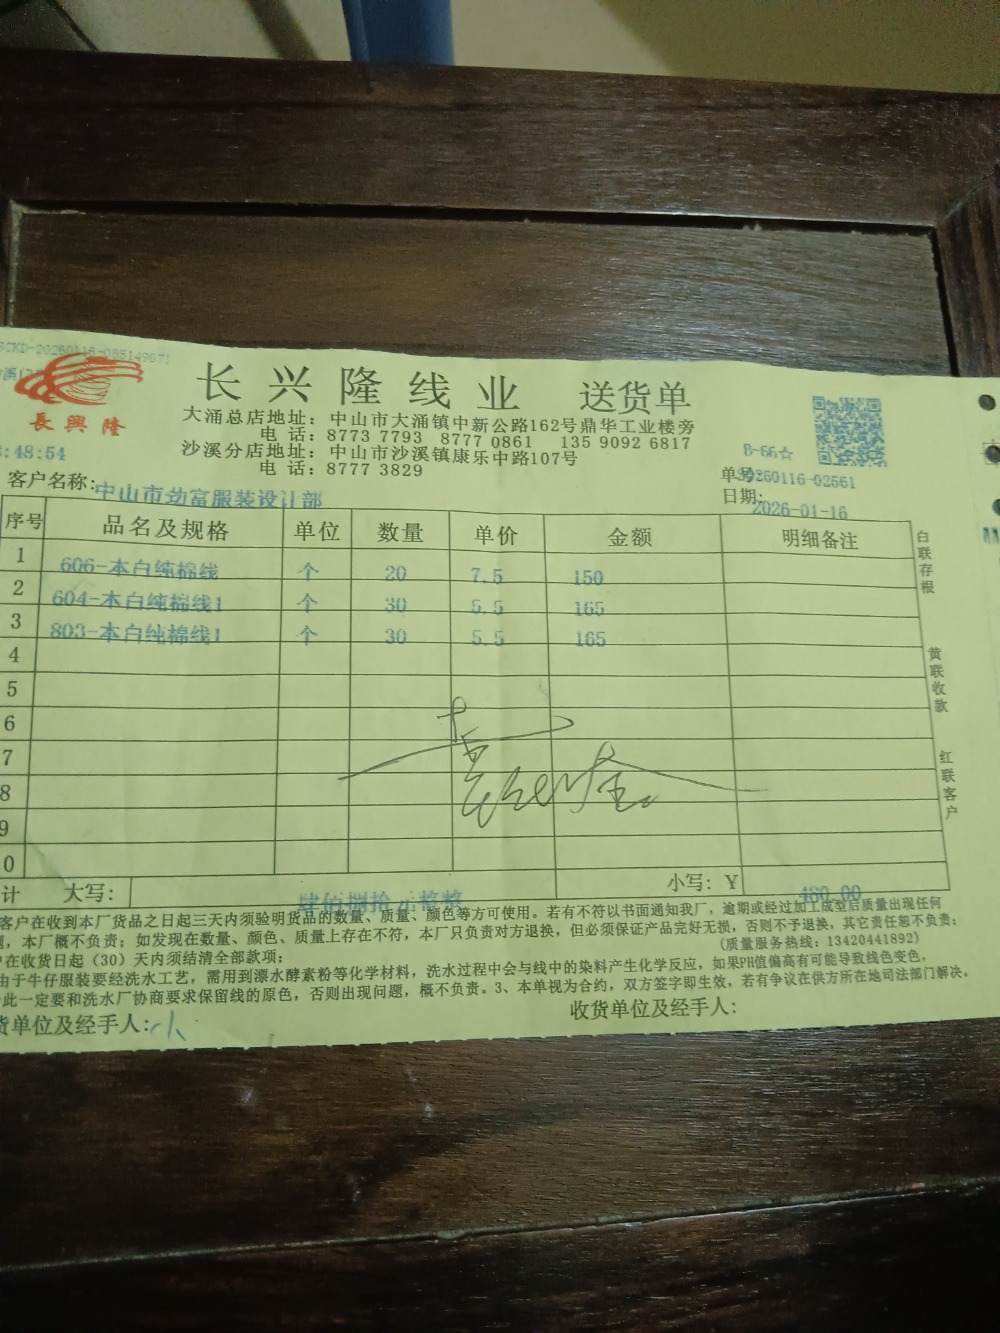 SCKD-20260116-085149871
長興隆
长兴隆线业 送货单
大涌总店地址：中山市大涌镇中新公路162号鼎华工业楼旁
电 话：8773 7793 8777 0861 135 9092 6817
沙溪分店地址：中山市沙溪镇康乐中路107号
电 话：8777 3829
:48:54
B-66☆
客户名称：中山市劲富服装设计部
单号：20260116-02561
日期：2026-01-16
序号 品名及规格 单位 数量 单价 金额 明细备注
1 606-本白纯棉线 个 20 7.5 150
2 604-本白纯棉线1 个 30 5.5 165
3 803-本白纯棉线1 个 30 5.5 165
4
5
6
7
8
9
0
白联存根
黄联收款
红联客户
计 大写： 肆佰捌拾元整整 小写：￥ 480.00
客户在收到本厂货品之日起三天内须验明货品的数量、质量、颜色等方可使用。若有不符以书面通知我厂，逾期或经过加工成型后质量出现任何
，本厂概不负责；如发现在数量、颜色、质量上存在不符，本厂只负责对方退换，但必须保证产品完好无损，否则不予退换，其它责任恕不负责；
在收货日起（30）天内须结清全部款项； （质量服务热线：13420441892）
由于牛仔服装要经洗水工艺，需用到漂水酵素粉等化学材料，洗水过程中会与线中的染料产生化学反应，如果PH值偏高有可能导致线色变色，
此一定要和洗水厂协商要求保留线的原色，否则出现问题，概不负责。3、本单视为合约，双方签字即生效，若有争议在供方所在地司法部门解决。
货单位及经手人： 收货单位及经手人：